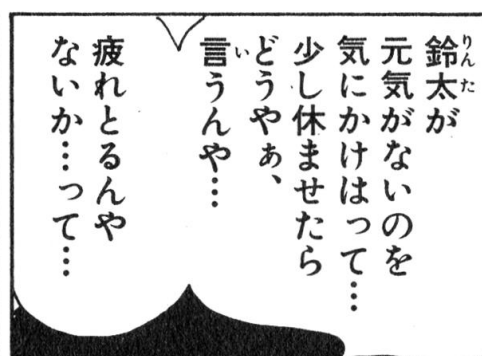 鈴太が
元気がないのを
気にかけはって…
少し休ませたら
どうやぁ、
言うんや…
疲れとるんや
ないか…って…